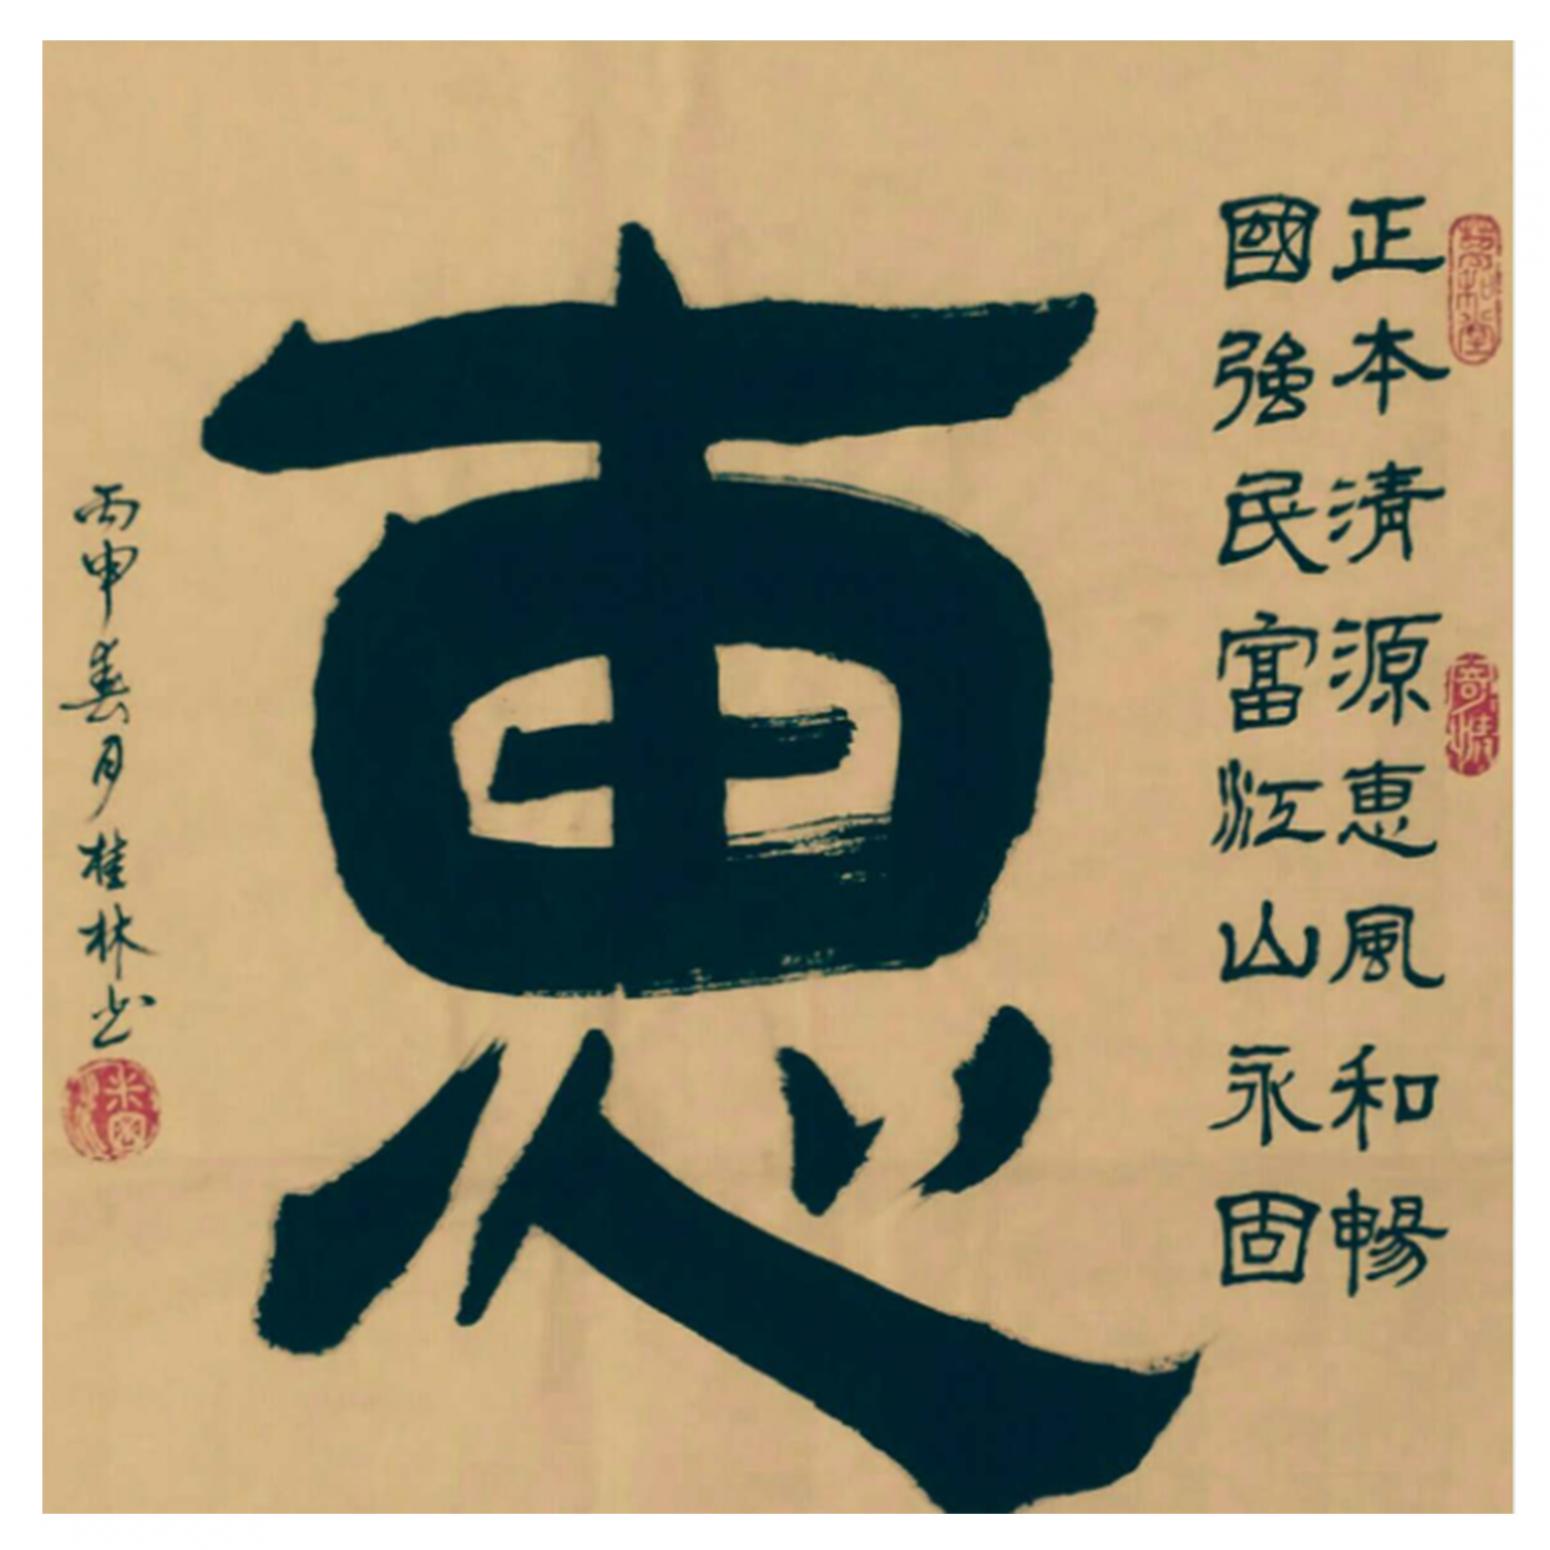 正本清源恵風和暢
國強民富江山永固
恵
丙申春月桂林书